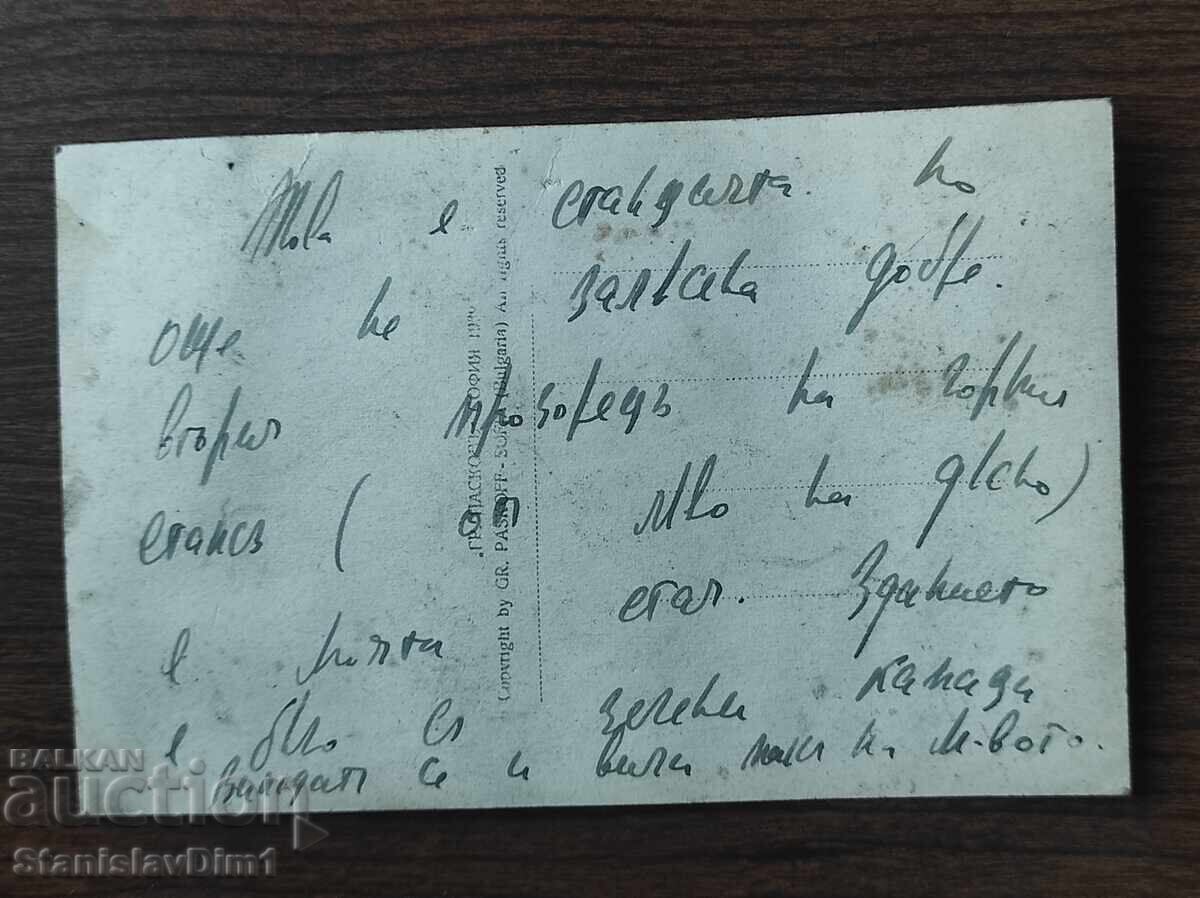 Това е станцията. но
още не залесена добре.
втория прозорецъ на горния
етажъ ( от ляво на дясно)
е моята стая. Зданието
е бяло съ зелени
се и вили
"ГР. ПАСКОВЪ" СОФИЯ
Copyright by GR. PASKOFF - SOFIA (Bulgaria) All rights reserved
BALKAN
auction
StanislavDim1